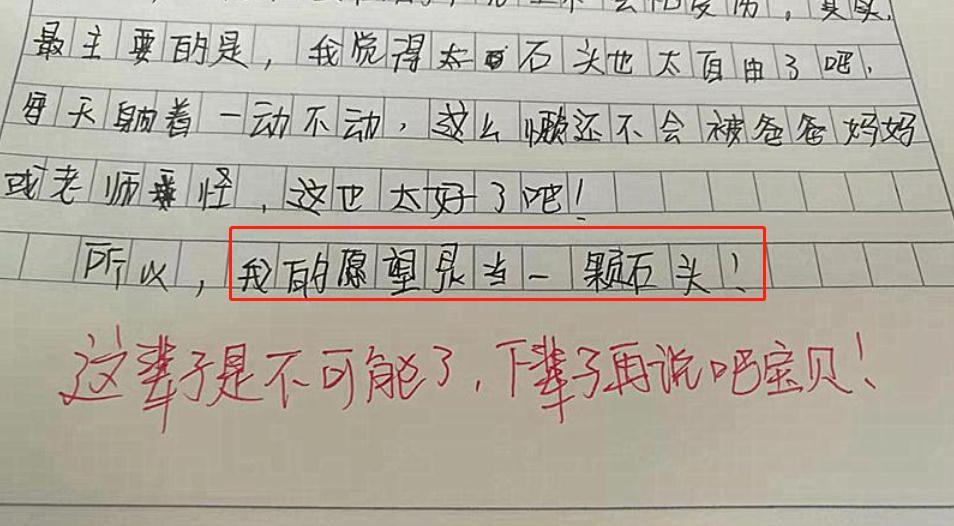 其实,
最主要的是，我觉得太石头也太自由了吧,
每天躺着一动不动，这么懒还不会被爸爸妈妈
或老师怪，这也太好了吧！
所以，我的愿望是当一颗石头！
这辈子是不可能了，下辈子再说吧宝贝！